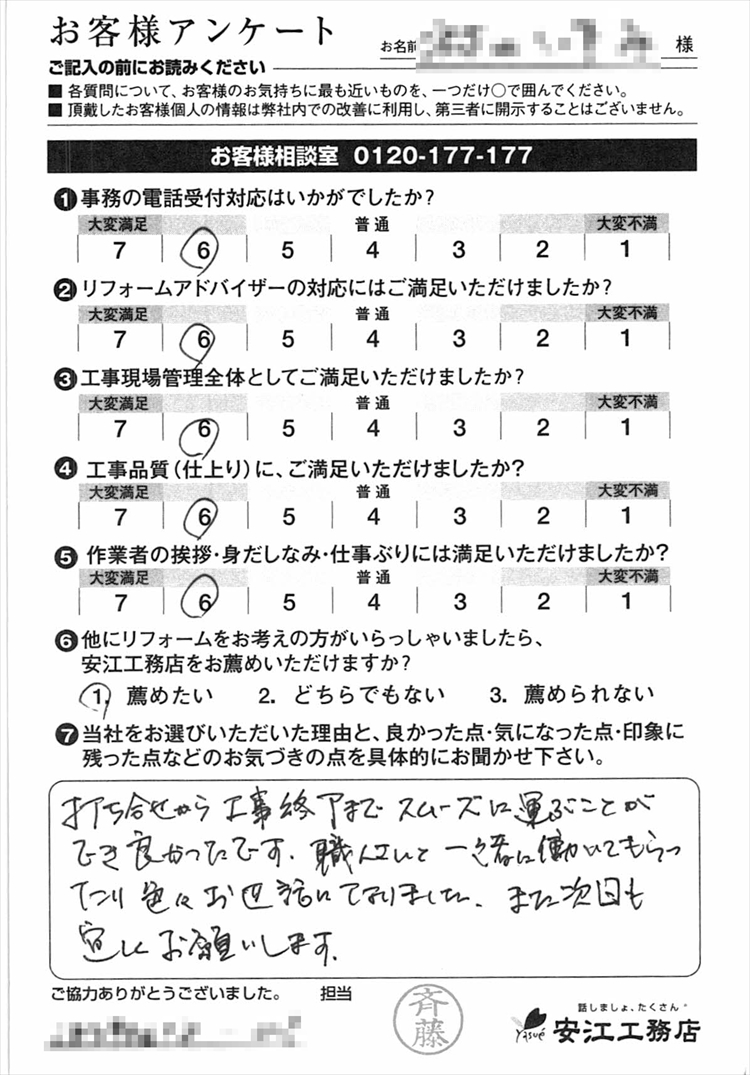 お客様アンケート
お名前 様
ご記入の前にお読みください
■ 各質問について、お客様のお気持ちに最も近いものを、一つだけ○で囲んでください。
■ 頂戴したお客様個人の情報は弊社内での改善に利用し、第三者に開示することはございません。
お客様相談室 0120-177-177
❶事務の電話受付対応はいかがでしたか?
大変満足 普通 大変不満
7 6 5 4 3 2 1
❷リフォームアドバイザーの対応にはご満足いただけましたか?
大変満足 普通 大変不満
7 6 5 4 3 2 1
❸工事現場管理全体としてご満足いただけましたか?
大変満足 普通 大変不満
7 6 5 4 3 2 1
❹工事品質(仕上り)に、ご満足いただけましたか?
大変満足 普通 大変不満
7 6 5 4 3 2 1
❺作業者の挨拶・身だしなみ・仕事ぶりには満足いただけましたか?
大変満足 普通 大変不満
7 6 5 4 3 2 1
❻他にリフォームをお考えの方がいらっしゃいましたら、
安江工務店をお薦めいただけますか?
1. 薦めたい 2. どちらでもない 3. 薦められない
❼当社をお選びいただいた理由と、良かった点・気になった点・印象に
残った点などのお気づきの点を具体的にお聞かせ下さい。
打ち合せから工事終了まで スムーズに運ぶことが
でき良かったです。職人さんと一緒に働いてもらっ
たり色々お世話になりました。また次回も
宜しくお願いします。
ご協力ありがとうございました。 担当
斉藤
話しましょ、たくさん
Yasué 安江工務店